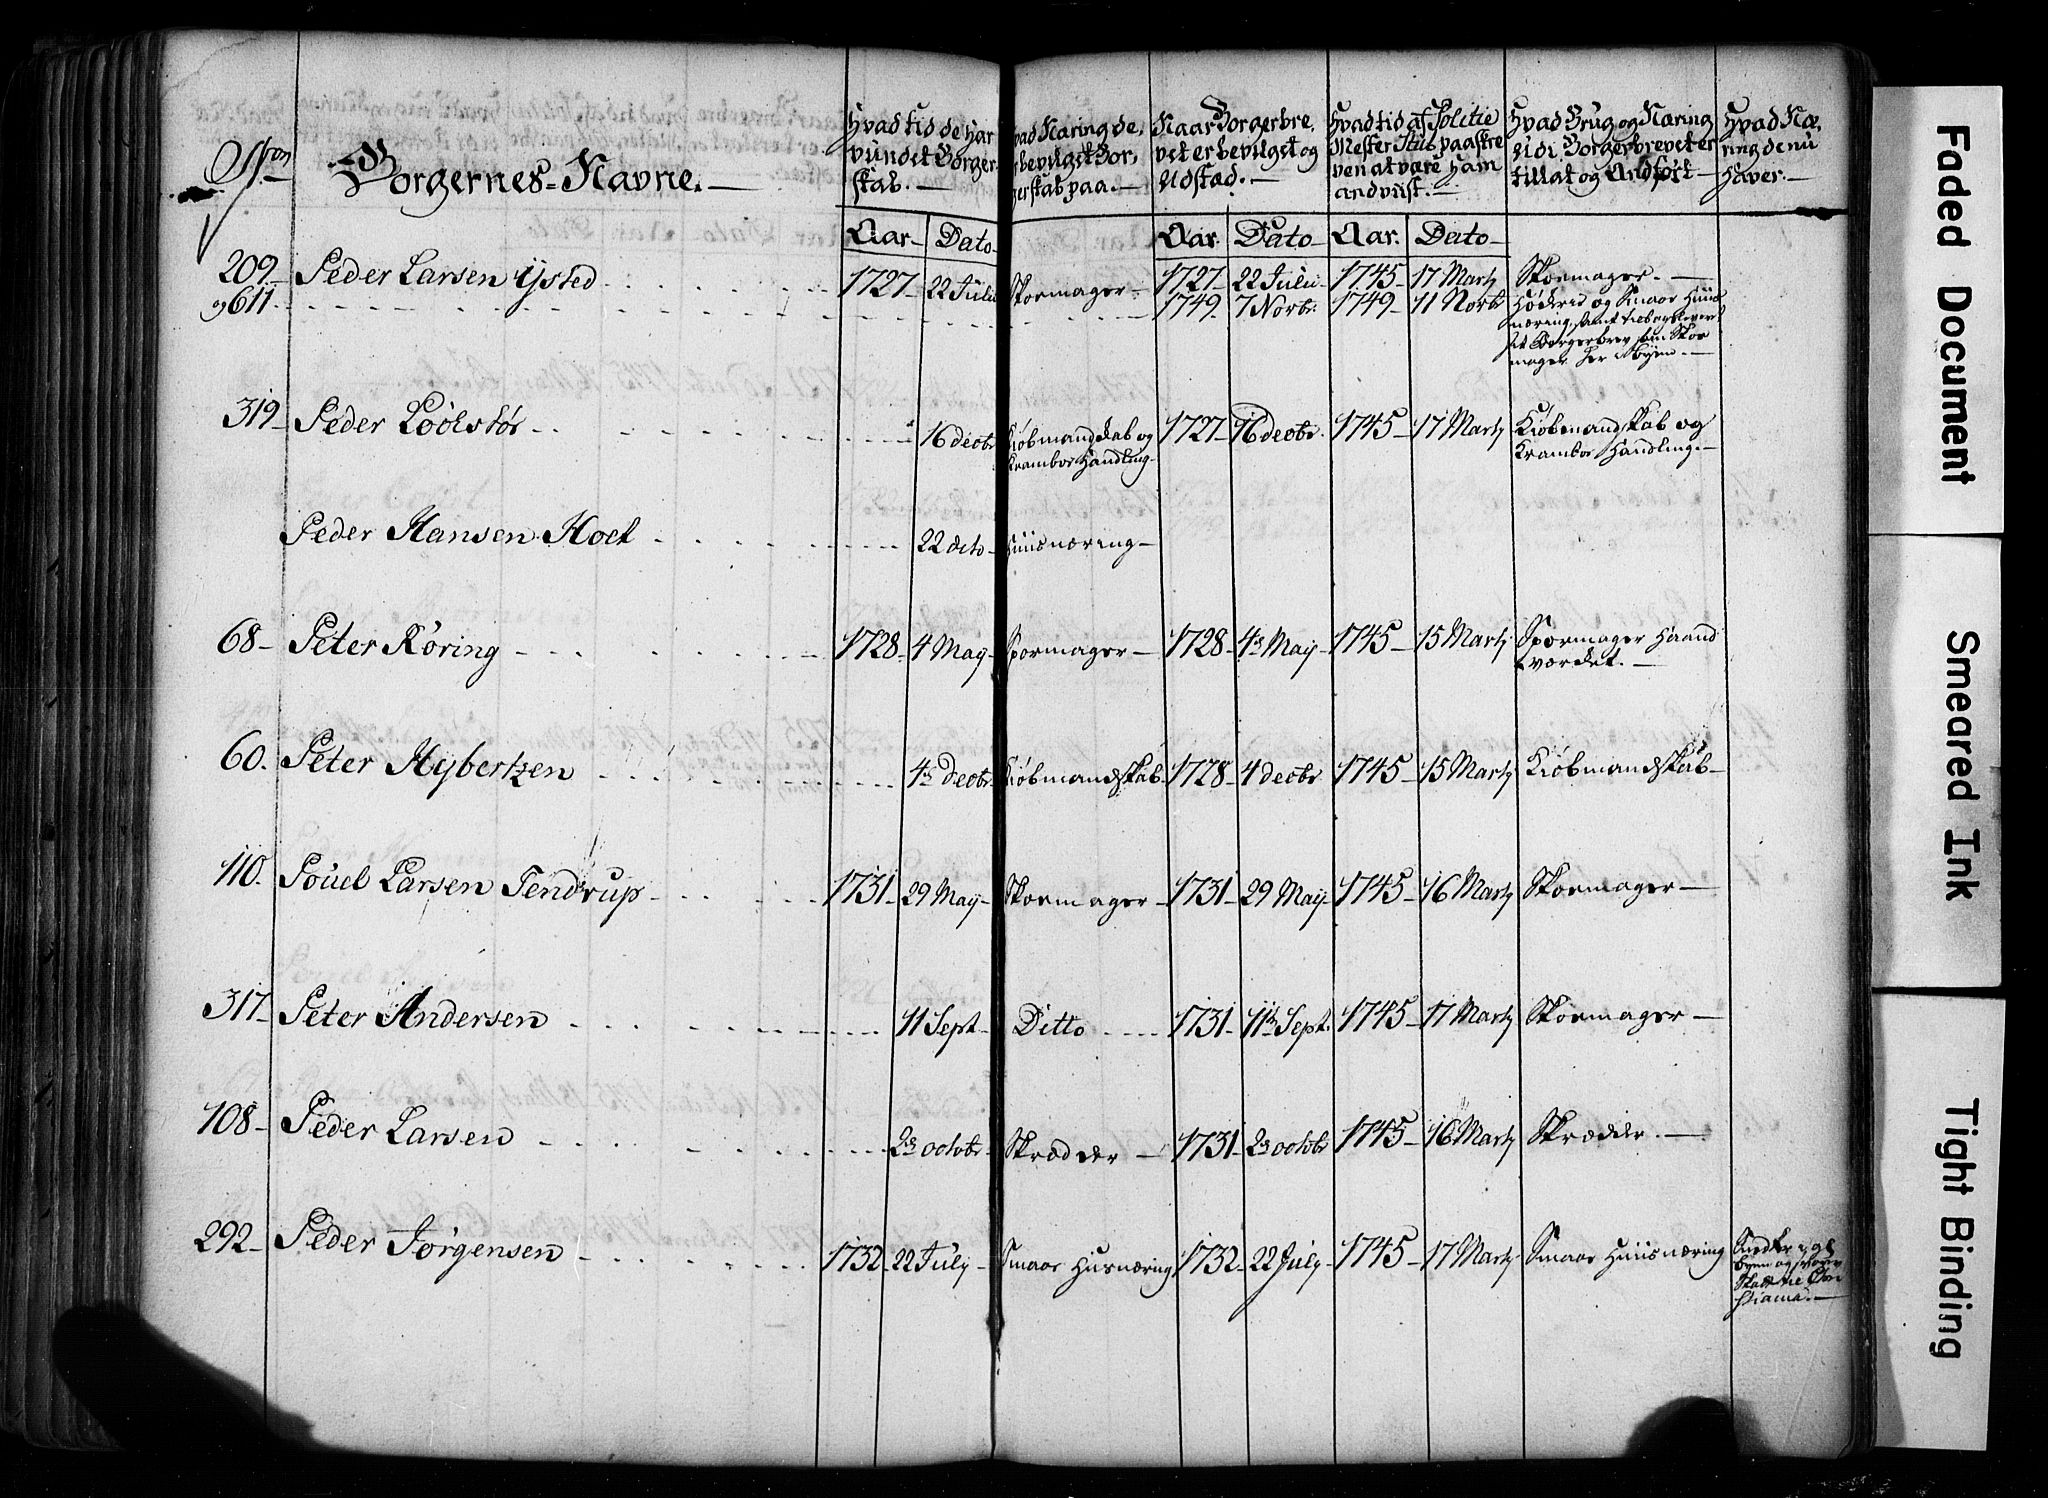 No. Borgernes Navne.
Hvad tid de har vundet Borgerskab.
Hvad Næring de er bevilget Borgerskab paa.
Naar Borgerbrevet er bevilget og Udstæd.
Hvad tid af Politie Mester paaskreven at være ham anviist.
Hvad Brug og Næring udi Borgerbrevet er tillat og Andført
Hvad Næring de nu haver.
Aar. Dato Aar. Dato Aar. Dato
209. Peder Larsen Ysted 1727 22 Julii Skoemager 1727 22 Julii 1745 17 Martj Skoemager.
og 611. 1749 7 Novbr. 1749 11 Novbr Høckerie og Smaae Huus
næring, samt tilbagelevert
sit Borgerbrev som Skoe
mager her i Byen.
319 Peder Löölstör 16 decbr Kiøbmandskab og 1727 16 decbr. 1745 17 Martj Kiøbmandskab og
Kramboe Handling Kramboe Handling.
Peder Hansen Hoel 22 dito Huusnæring
68 Peter Röring 1728 4 May Spormager 1728 4de May 1745 15 Martj Spormager Haand
værcket.
60. Peter Hybertzen 4de Decbr Kiøbmandskab 1728 4 decbr 1745 15 Martj Kiøbmandskab
110. Pouel Larsen Tendrup 1731 29 May Skoemager 1731 29 May 1745 16 Martj Skoemager
317 Peter Andersen 11 Sept Ditto 1731 11te Sept. 1745 17 Martj Skoemager
108 Peder Larsen 2de octobr Skrædder 1731 2de octobr 1745 16 Martj Skrædder.
292 Peder Jörgensen 1732 22 July Smaae Husnæring 1732 22 July 1745 17 Martj Smaae Huusnæring
Byen og
Faded Document
Smeared Ink
Tight Binding